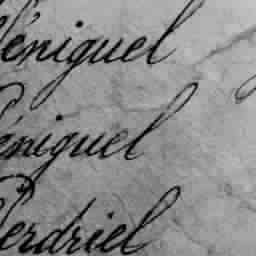 Péniguel
Péniguel
Perdriel